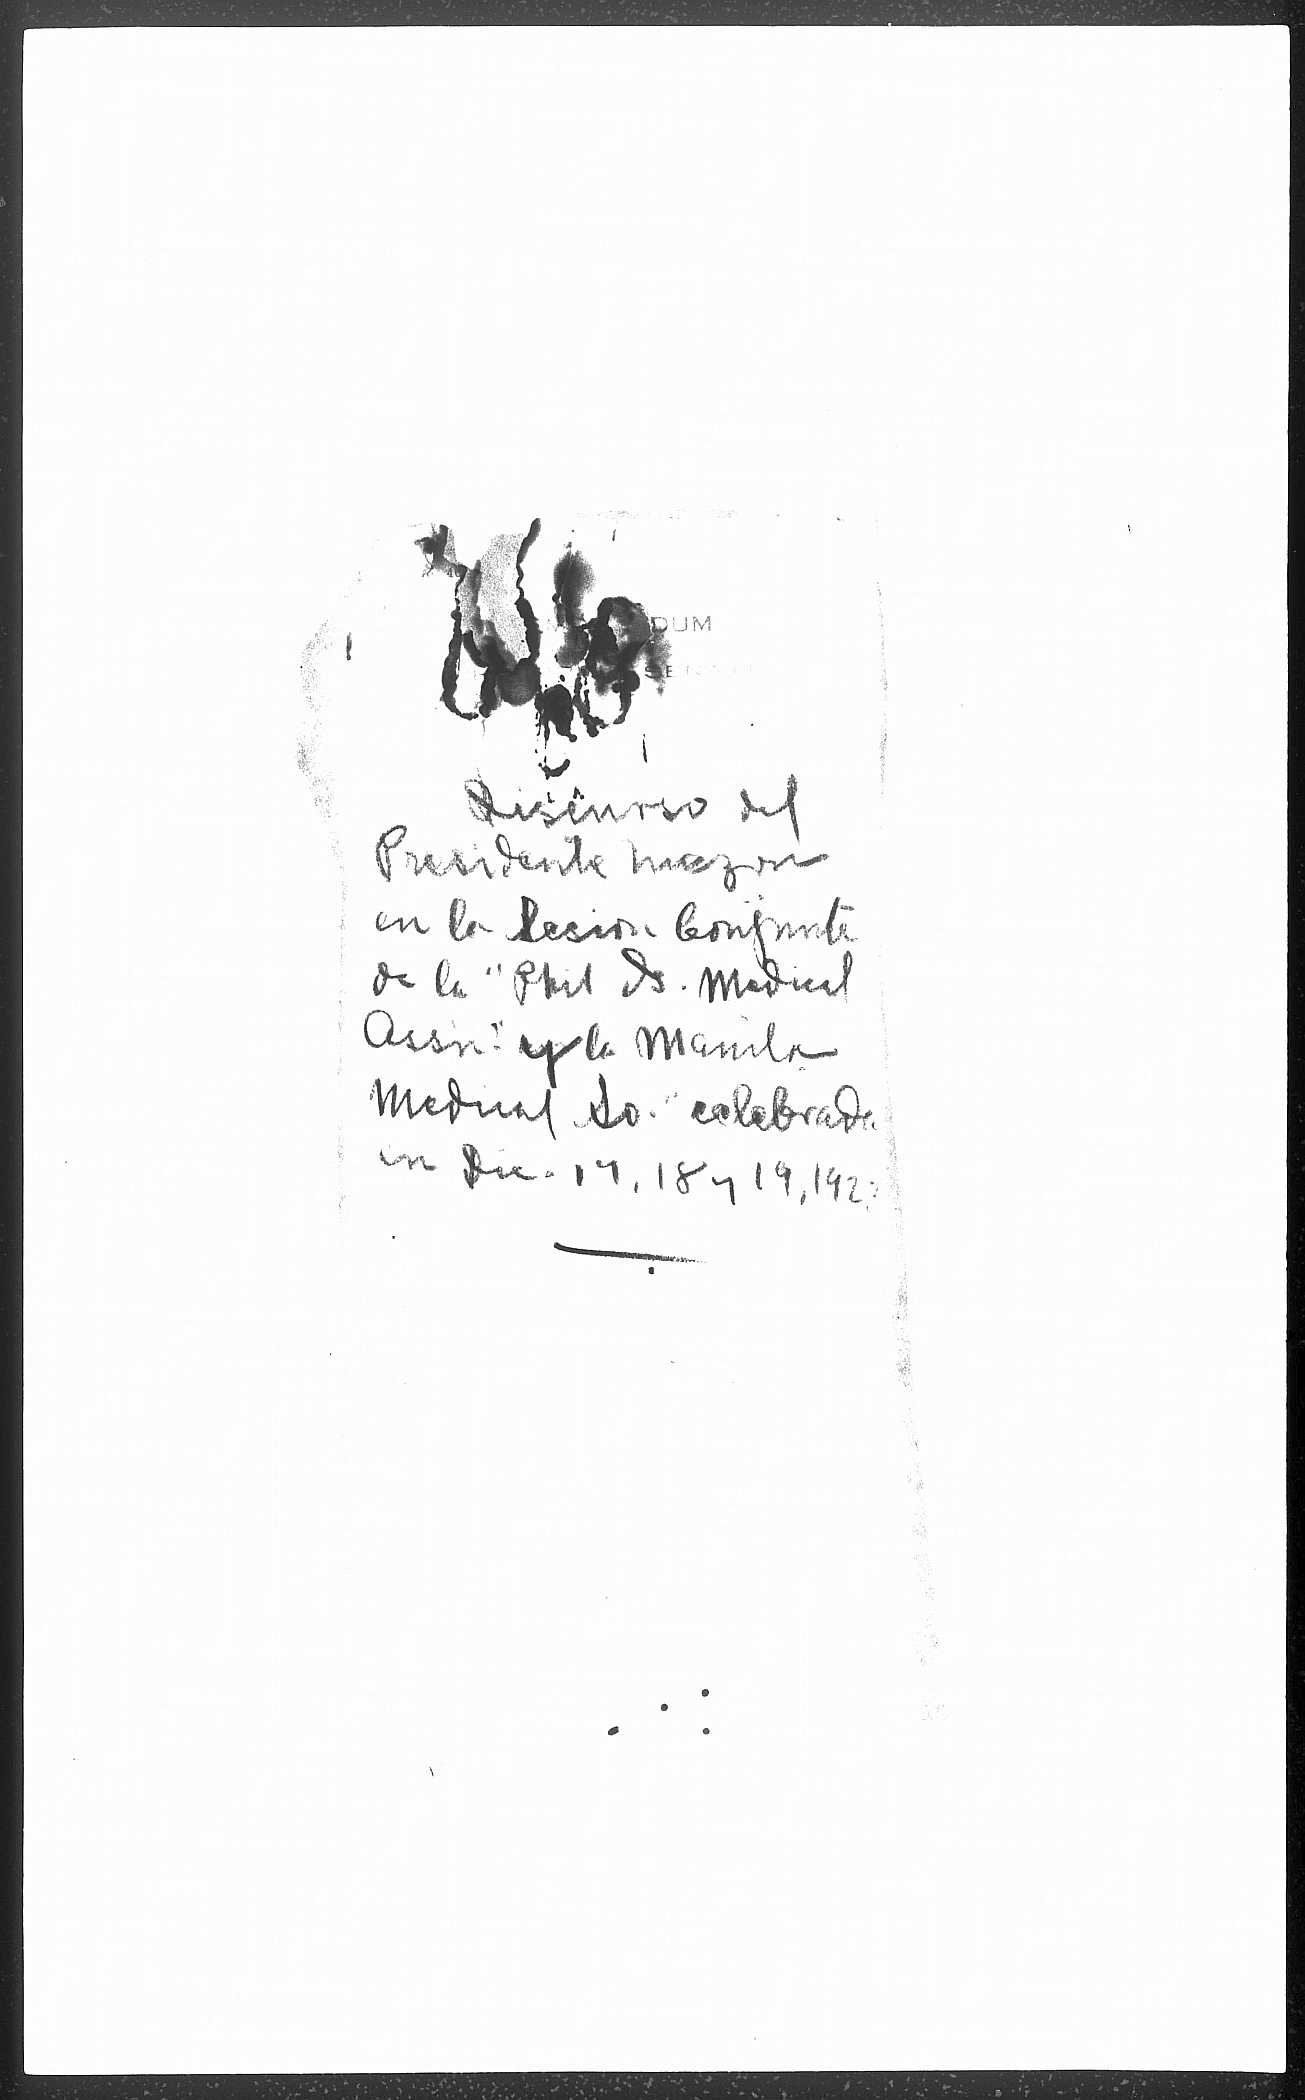 DUM
SEN
Discurso del
Presidente Mazon
en la Sesion Conjunta
de la "Phil Is. Medical
Assn." y la Manila
Medical So." celebrada
en Dic. 17, 18 y 19, 192